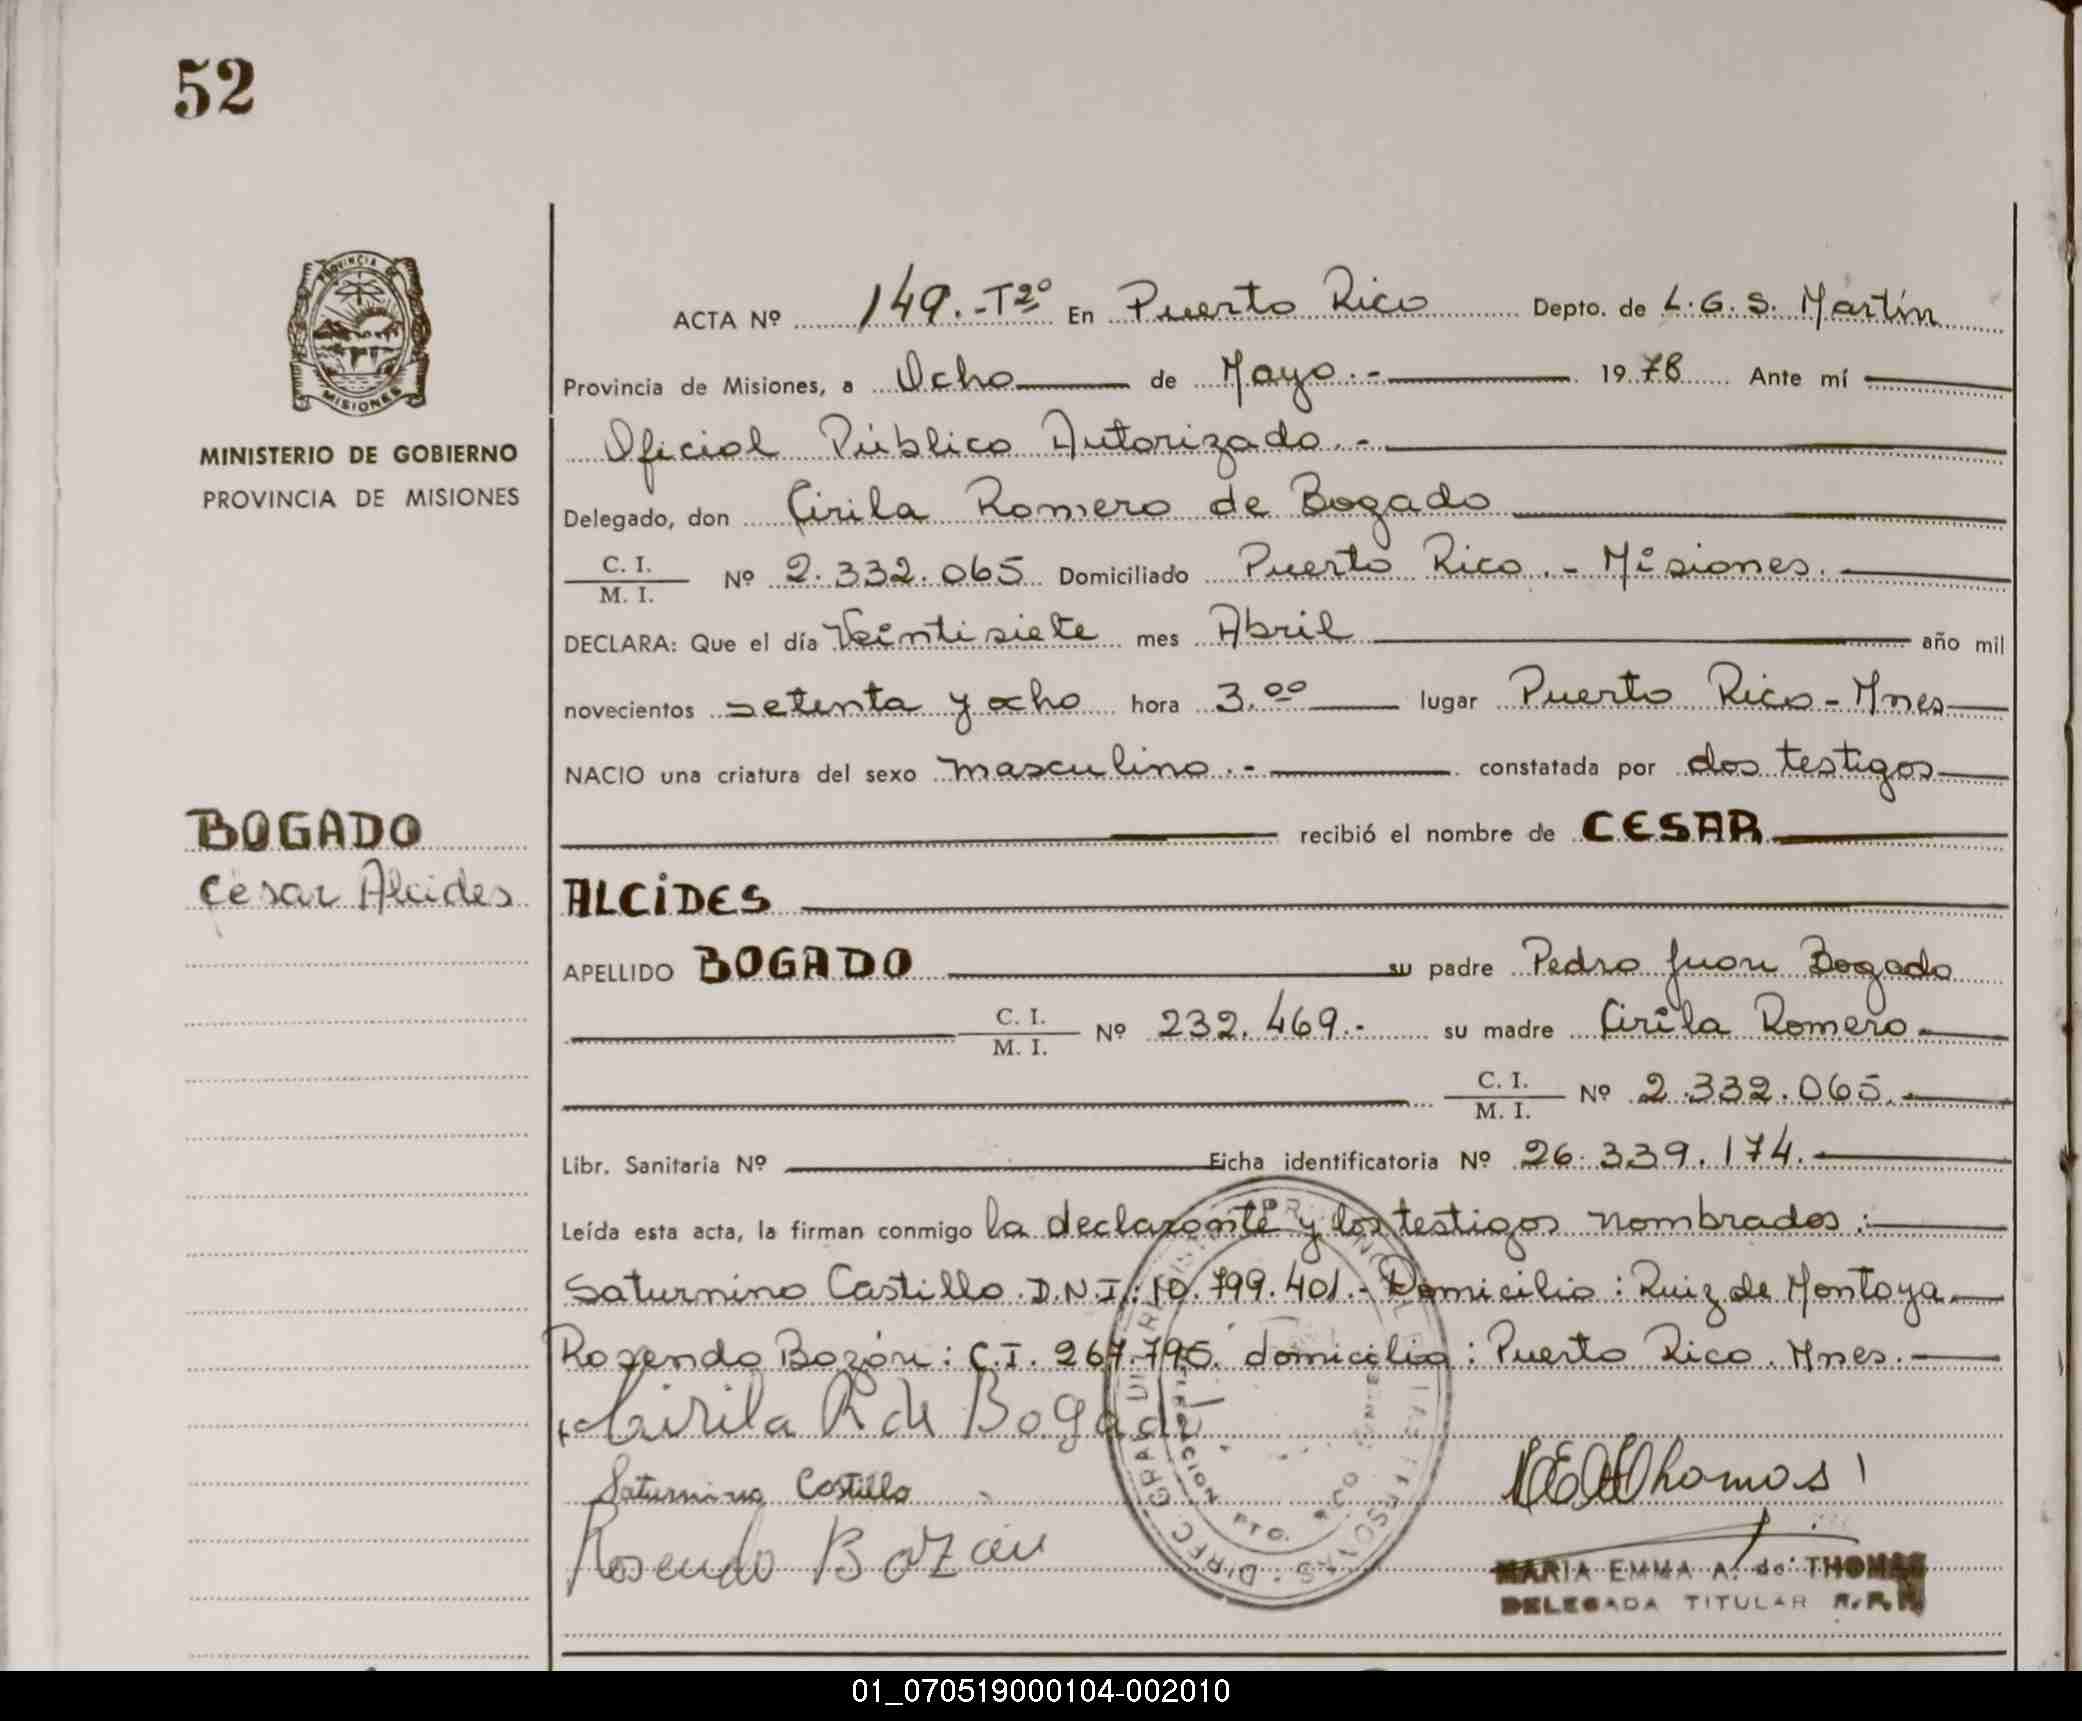 52
PROVINCIA DE
MISIONES
MINISTERIO DE GOBIERNO
PROVINCIA DE MISIONES
BOGADO
Cesar Alcides
ACTA Nº 149.-T2º En Puerto Rico Depto. de L.G.S. Martín
Provincia de Misiones, a Ocho de Mayo.- 1978 Ante mí
Oficial Público Autorizado.-
Delegado, don Cirila Romero de Bogado
C. I. / M. I. Nº 2.332.065 Domiciliado Puerto Rico.- Misiones.
DECLARA: Que el día Veintisiete mes Abril año mil
novecientos setenta y ocho hora 3.00 lugar Puerto Rico-Mnes
NACIO una criatura del sexo masculino.- constatada por dos testigos
recibió el nombre de CESAR
ALCIDES
APELLIDO BOGADO su padre Pedro Juan Bogado
C. I. / M. I. Nº 232.469.- su madre Cirila Romero
C. I. / M. I. Nº 2.332.065.
Libr. Sanitaria Nº Ficha identificatoria Nº 26.339.174.
Leída esta acta, la firman conmigo la declarante y los testigos nombrados:
Saturnino Castillo D.N.I.: 10.799.401.- Domicilio: Ruiz de Montoya
Rosendo Bazán: C.I. 267.795. domicilio: Puerto Rico. Mnes.
Cirila R de Bogado
Saturnino Castillo
Rosendo Bazan
Thomas
PTO. RICO
MARIA EMMA A. de THOMAS
DELEGADA TITULAR R.P.
01_070519000104-002010